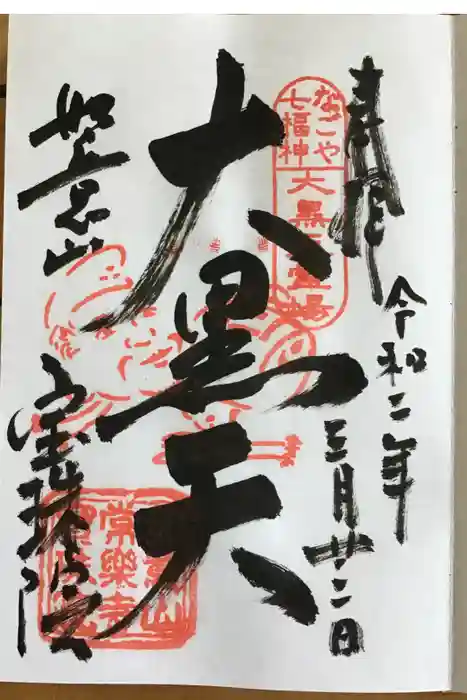 奉拝
令和二年
三月廿二日
なごや
七福神
大黒天霊場
大黒天
如意山
宝珠院
常樂寺